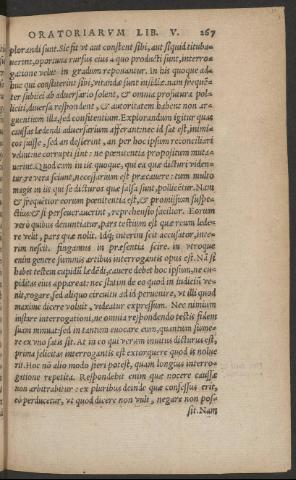 ORATORIARVM LIB. V. 267
plorandi sunt. Sic fit vt aut constent sibi, aut siquid tituba-
uerint, oportuna rursus eius a quo producti sunt, interro-
gatione velut in gradum reponantur. In his quoque ad-
huc qui constiterint sibi, vitandæ sunt insidiæ. nam frequē-
ter subiici ab aduersario solent, & omnia profutura pol-
liciti, diuersa respondent, & autoritatem habent non ar-
guentium illa, sed confitentium. Explorandum igitur quas
causas lædendi aduersarium afferant: nec id sat est, inimi-
cos fuisse, sed an desierint, an per hoc ipsum reconciliari
velint: ne corrupti sint: ne pœnitentia propositum muta-
uerint. Quod cum in iis quoque, qui ea quæ dicturi viden-
tur re vera sciunt, necessarium est præcauere: tum multo
magis in iis qui se dicturos quæ falsa sunt, pollicētur. Nam
& frequētior eorum pœnitentia est, & promissum suspe-
ctius: & si perseuerauerint, reprehensio facilior. Eorum
vero quibus denuntiatur, pars testium est quæ reum læde-
re velit, pars quæ nolit. Idq; interim scit accusator, inte-
rim nescit. fingamus in præsentia scire. in vtroque
enim genere summis artibus interrogantis opus est. Nā si
habet testem cupidū lædēdi, cauere debet hoc ipsum, ne cu-
piditas eius appareat: nec statim de eo quod in iudiciū ve-
nit, rogare, sed aliquo circuitu ad id peruenire, vt illi quod
maxime dicere voluit, videatur expressum. Nec nimium
instare interrogationi, ne omnia respondendo testis fidem
suam minuat: sed in tantum euocare eum, quantum sume-
re ex vno satis sit. At in eo qui verum inuitus dicturus est,
prima felicitas interrogantis est extorquere quod is nolue
rit. Hoc nō alio modo fieri potest, quàm longius interro-
gatione repetita. Respondebit enim quæ nocere causæ
non arbitrabitur: ex pluribus deinde quæ confessus erit,
eò perducetur, vt quod dicere non vult, negare non pos-
sit. Nam